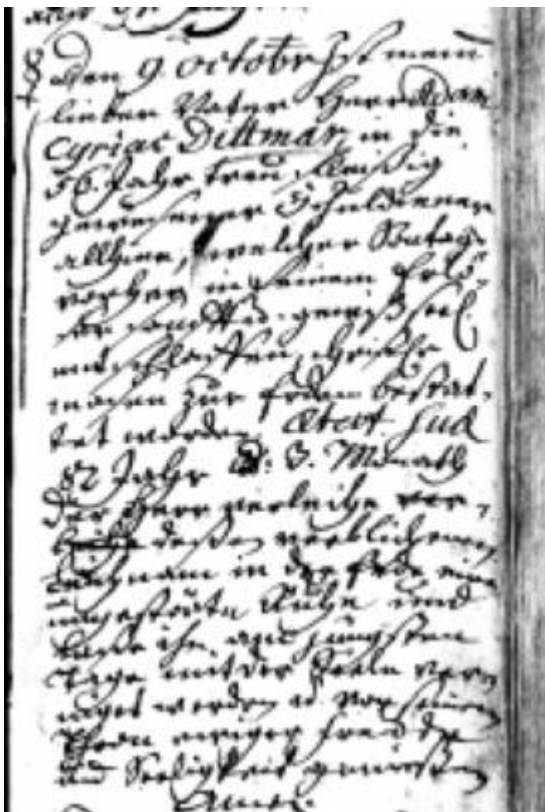 den 9. octobr Ist mein
lieber Vater Herr Adam
Cyriac Dittmar, in die
56. Jahr treu fleißig
gewesener Schuldiener
allhier, welcher
vorher in seinem Erlö-
ser sanfft u. gewiß seel.
entschlaffen, christl.
maßen zur Erden bestat-
tet worden. Ætat. suæ
82 Jahr u. 3. Monath
Der Herr verleihe
deßen verblichenen
Leichnam in der Erde eine
ungestörte Ruhe und
laße ihn am jüngsten
Tage mit der Seele verei-
niget werden u. vor seinem
Thron ewiger Freude
und Seeligkeit genießen
Amen